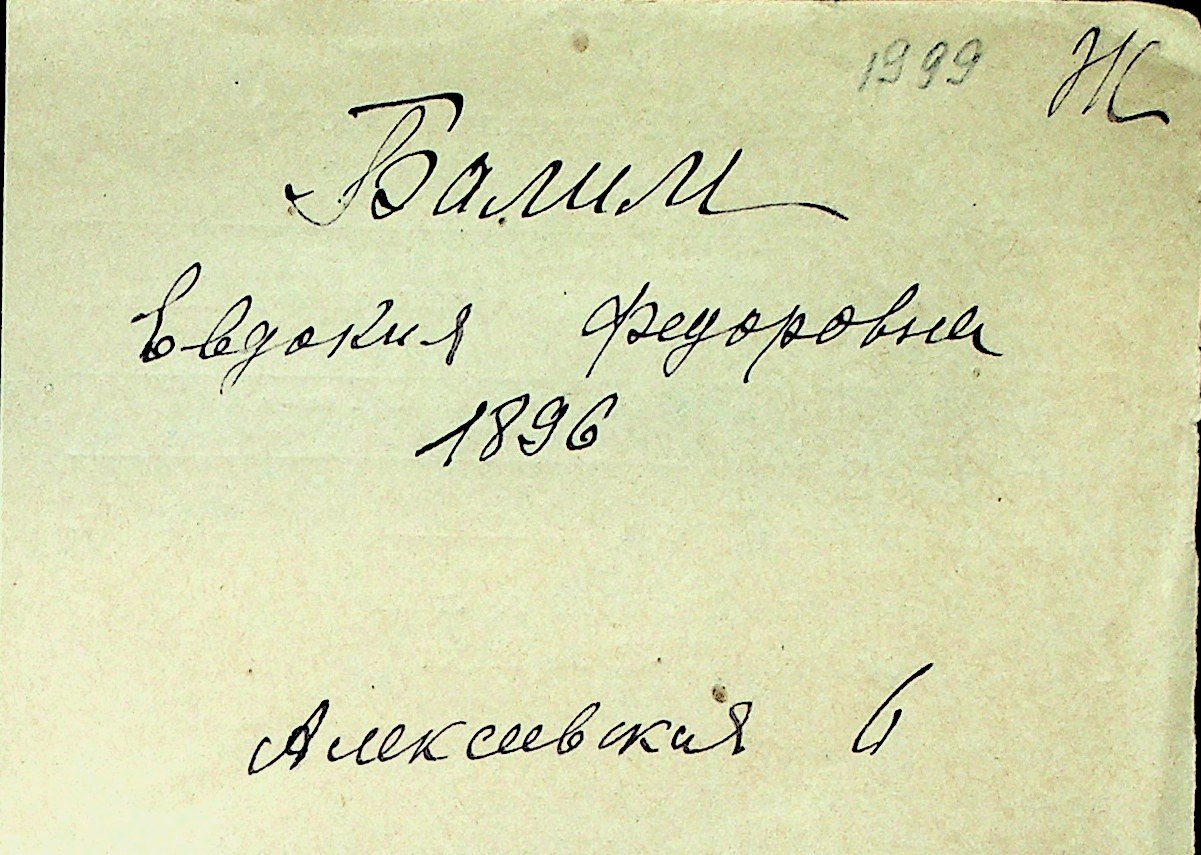 1999 Ж
Балим
Евдокия Федоровна
1896
Алексеевская 6